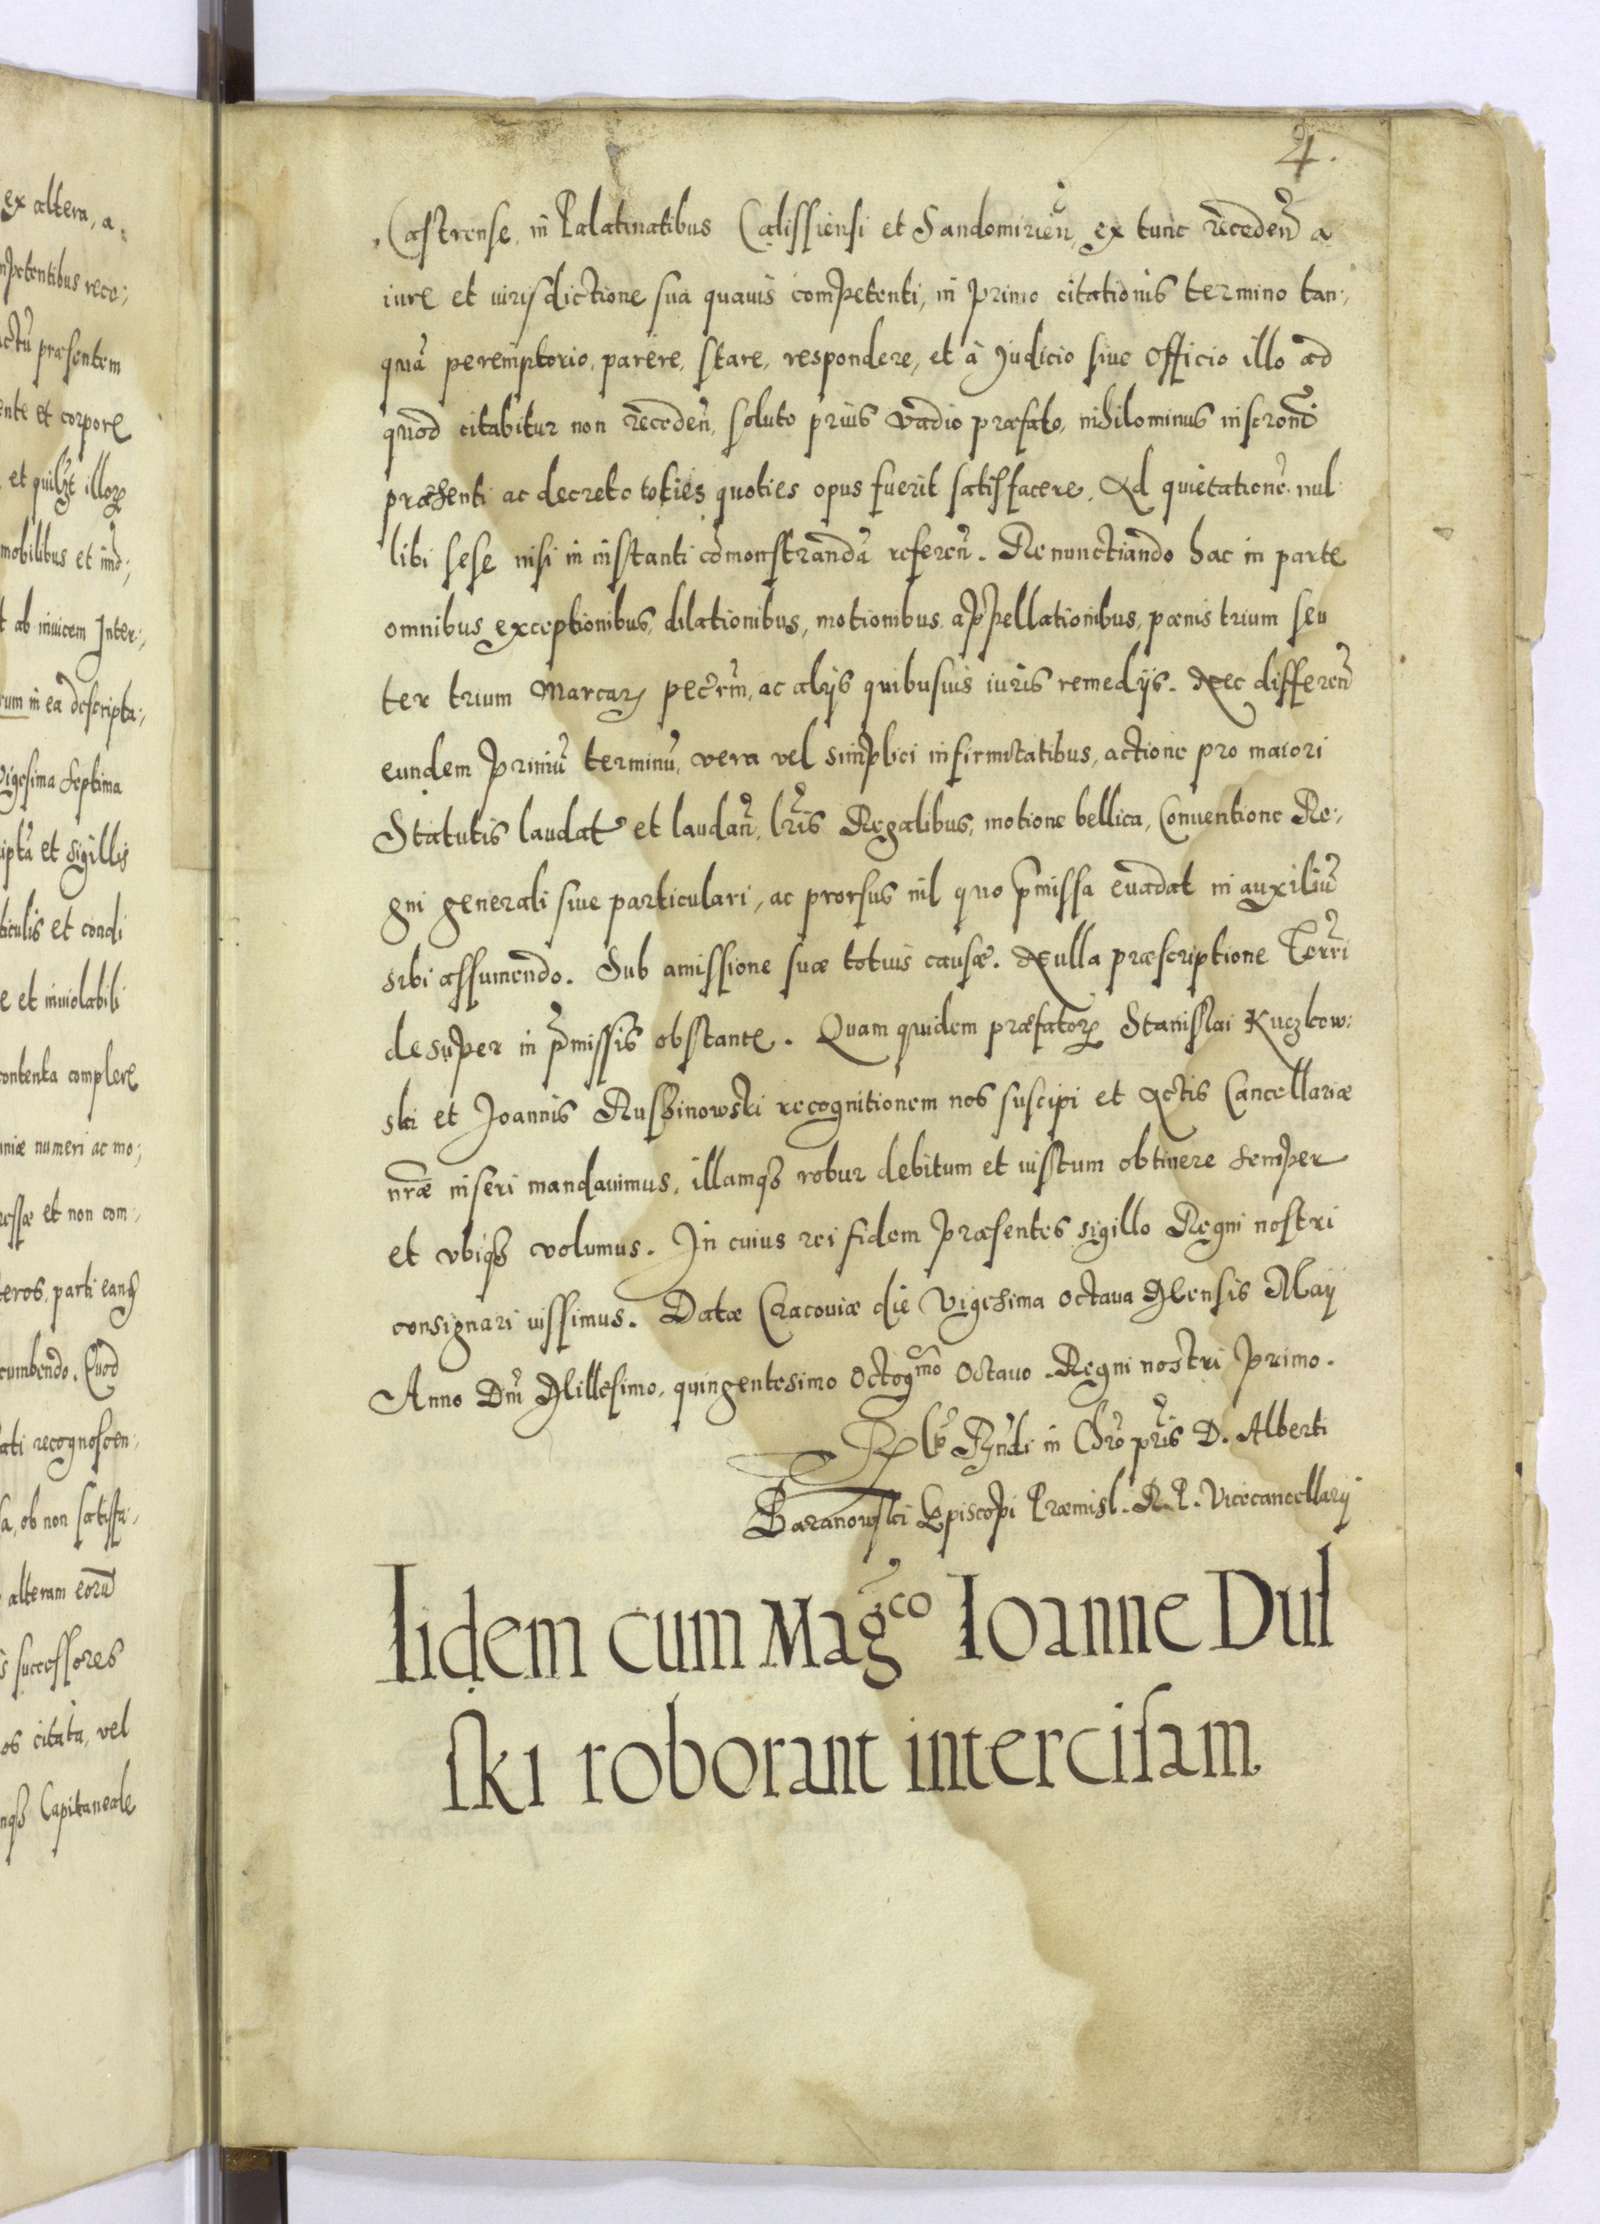 ex altera, a:
mpetentibus reco:
actũ præsentem
ente et corpore
et quilzt illorꝝ
mobilibus et im̃o:
t ab inuicem Inter:
rum in ea descripta:
Vigesima septima
ripta et sigillis
ticulis et condi
e et inuiolabili
contenta complere
uniæ numeri ac mo:
ressæ et non com:
teros, parti eanqꝫ
cumbendo. Quod
ati recognoscen:
sa, ob non satisfa:
alteram eorũ
s successores
os citata, vel
nqꝫ Capitaneale
4.
Castrense, in Palatinatibus Calissiensi et Sandomirieñ, ex tunc recedeñ a
iure et iurisdictione sua quauis competenti, in primo citationis termino tan:
quã peremptorio, parere, stare, respondere, et à Judicio siue Officio illo ad
quod citabitur non recedeñ, soluto prius vadio præfato, nihilominus inscroñi
præsenti ac decreto toties quoties opus fuerit satisfacere. Ad quietationẽ nul
libi sese nisi in instanti cõmonstrandã refereñ. Renunctiando hac in parte
omnibus exceptionibus, dilationibus, motionibus, appellationibus, pœnis trium seu
ter trium Marcarꝝ pecrm̃, ac alijs quibusuis iuris remedijs. Nec differeñ
eundem primũ terminũ, vera vel simplici infirmitatibus, actione pro maiori
Statutis laudat et laudañ, lr̃is Regalibus, motione bellica, Conuentione Re:
gni generali siue particulari, ac prorsus nil quo p̃missa euadat in auxiliũ
sibi assumendo. Sub amissione suæ totius causæ. Nulla præscriptione Terri
desuper in p̃missis obstante. Quam quidem præfatorꝝ Stanislai Kuczkow:
ski et Joannis Russinowski recognitionem nos suscipi et Actis Cancellariæ
nr̃æ inseri mandauimus, illamqꝫ robur debitum et iustum obtinere semper
et vbiqꝫ volumus. In cuius rei fidem præsentes sigillo Regni nostri
consignari iussimus. Datæ Cracouiæ die Vigesima octaua Mensis Maij
Anno Dñi Millesimo, quingentesimo Octogmo Octauo. Regni nostri primo.
Rñdi in Chr̃o pr̃is D. Alberti
Baranowski Episcopi Præmisl. R. P. Vicecancellarij
Iidem cum Magco Ioanne Dul
ski roborant intercisam